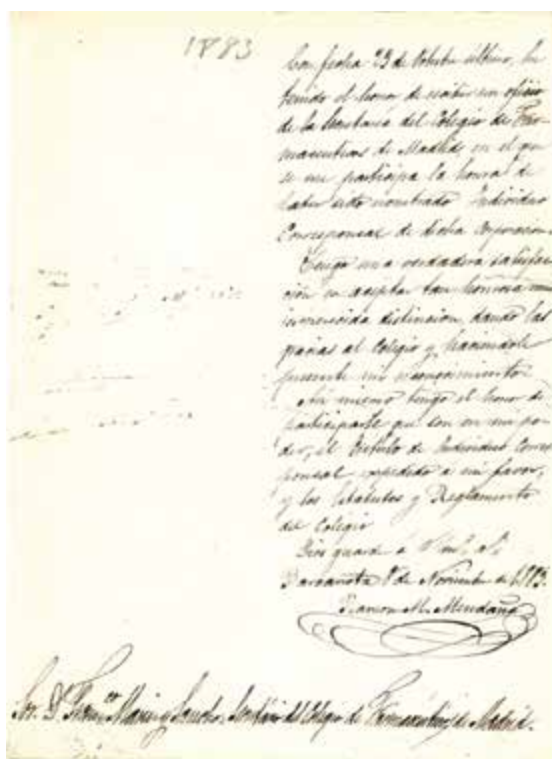 1883
Con fecha 23 de Octubre último, he
tenido el honor de recibir un oficio
de la Secretaria del Colegio de Far-
maceuticos de Madrid, en el que
se me participa la honra de
haber sido nombrado Individuo
Corresponsal de dicha Corporacion
Tengo una verdadera satisfac-
ción en aceptar tan honrosa
inmerecida distincion, dando las
gracias al Colegio y haciendole
presente mi reconocimiento
Asi mismo tengo el honor de
participarle que son en mi po-
der, el titulo de Individuo Corres-
ponsal expedido a mi favor,
y los Estatutos y Reglamento
del Colegio
Dios guarde á
Barcarrota 8 de Noviembre de 1883.
Ramon M. Mendaña
Sor. D. Franco Marin y Sancho. Secretario del Colegio de Farmaceuticos de Madrid.